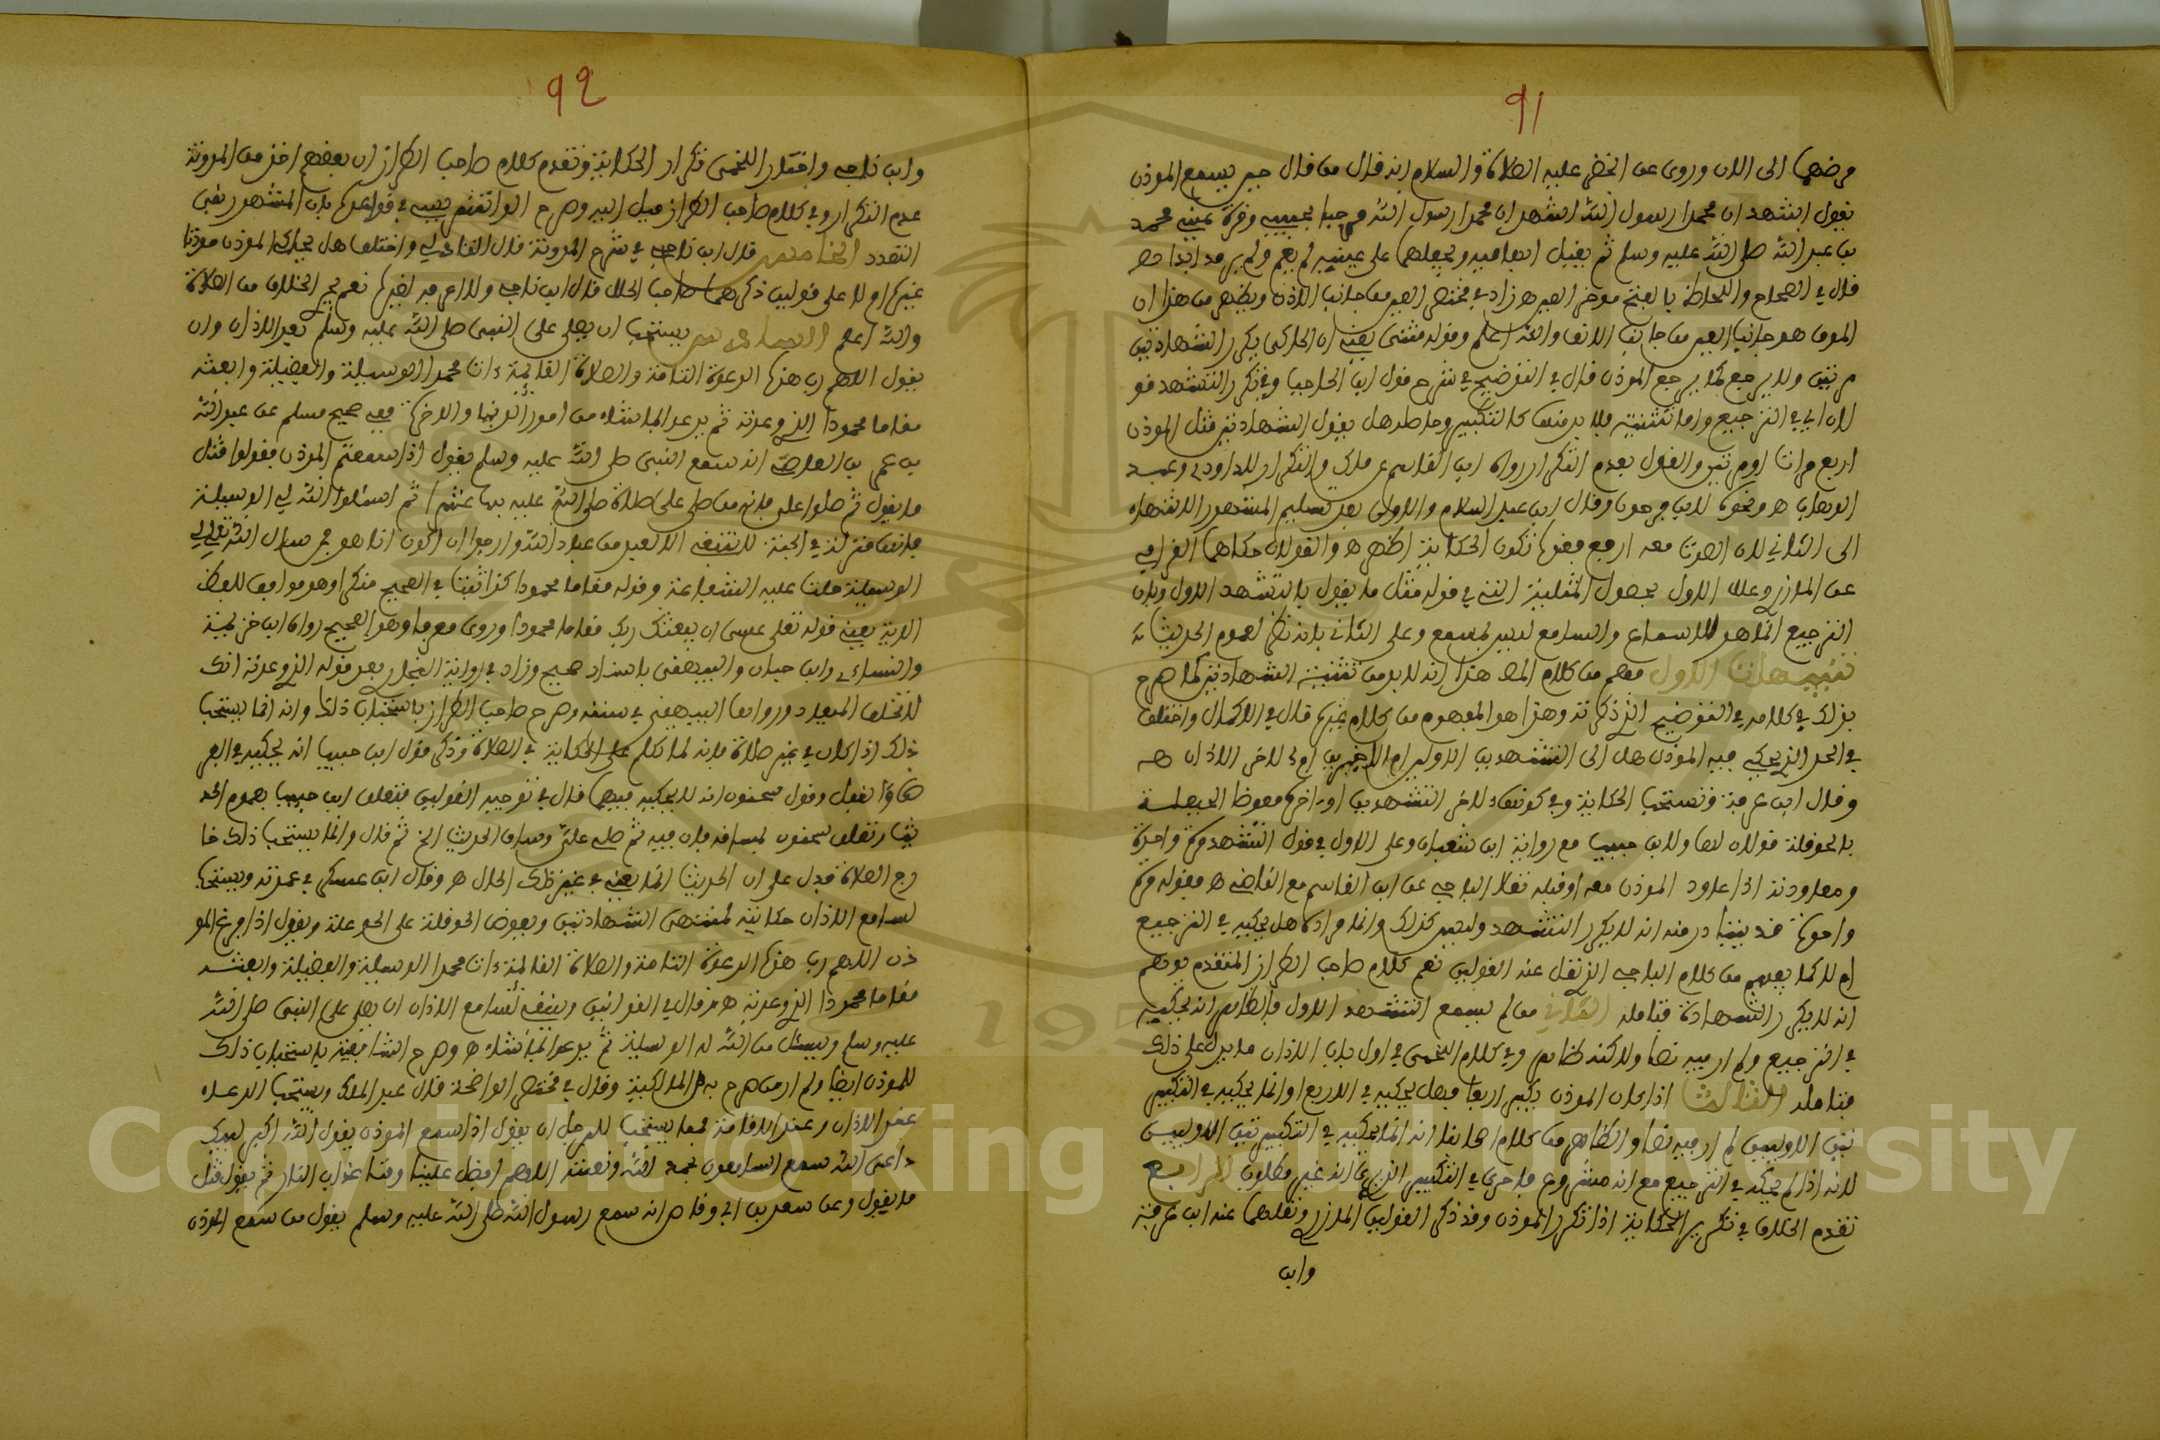 ٩١
مرضهما الى الان وروى عن الخضر عليه الصلاة والسلام انه قال من قال حين يسمع الموذن
يقول اشهد ان محمدا رسول الله اشهد ان محمدا رسول الله مرحبا بحبيبي وقرة عيني محمد
بن عبد الله صلى الله عليه وسلم ثم يقبل ابهاميه ويجعلهما على عينيه لم يعم ولم يرمد ابدا
قال في الصحاح واللحاظ بالفتح موخر العين
الموق هو جانب العين من جانب الانف والله اعلم وقوله مثنى يعني ان الحاكي يكرر الشهادتين
مرتين ولا يرجع كما يرجع الموذن قال في التوضيح في شرح قول ابن الحاجب وفي تكرر التشهد قو
لان اي في الترجيع واما تثنيته فلا بد منها كالتكبير وحاصله هل يقول الشهادتين مثل الموذن
اربع مرات او مرتين والقول بعدم التكرار رواه ابن القاسم عن مالك والتكرار للداودي وعبد
الوهاب ونحوه لابن وقال ابن عبد السلام والاولى بعد تسليم المشهور الانتهاء
الى الثاني لان الصوت معه ارفع تكون الحكاية اظهر والقولان حكاهما القرافي
عن المازري وعلل الاول بحصول المثلية التي في قوله مثل ما يقول بالتشهد الاول وبان
الترجيع انما هو للاسماع والسامع ليس بمسمع وعلى الثاني بانه ظاهر لعموم الحديث
تنبيهات الاول فهم من كلام المص هذا انه لا بد من تثنية الشهادتين كما صرح
بذلك في كلامه في التوضيح الذي ذكرته وهذا هو المفهوم من كلام غيره قال في الاكمال واختلف
في الحد الذي يحكي فيه الموذن هل الى التشهدين الاولين ام الاخيرين ام لاخر الاذان
وقال ابن عرفة وتستحب الحكاية وفي كونها لاخر التشهدين او اخره معوضا الحيعلة
بالحوقلة قولان لها ولابن حبيب مع رواية ابن شعبان وعلى الاول في قول التشهد مرة واحدة
ومعاودته اذا عاود الموذن معه او قبله نقلا الباجي عن ابن القاسم مع القاضي فقوله مرة
واحدة قد يتبادر منه انه لا يكرر التشهد وليس كذلك وانما مراده هل يحكيه في الترجيع
ام لا كما يفهم من كلام الباجي الذي نقل عنه القولين نعم كلام صاحب الطراز المتقدم يوهم
انه لا يكرر الشهادة فتامله الثاني من لم يسمع التشهد الاول فالظاهر انه يحكيه
في الترجيع ولم ار فيه نصا ولاكنه ظاهر وفي كلام اللخمي في اول باب الاذان ما يدل على ذلك
فتامله الثالث اذا كان الموذن يكبر اربعا فهل يحكيه في الاربع او انما يحكيه في التكبير
تين الاوليين لم ار فيه نصا والظاهر من كلام اصحابنا انه انما يحكيه في التكبيرتين الاوليين
لانه اذا لم يحكه في الترجيع مع انه مشروع فاحرى في التكبير الذي يرى انه غير مطلوب الرابع
تقدم الخلاف في تكرير الحكاية اذا تكرر الموذن وقد ذكر القولين المازري ونقلهما عنه ابن عرفة
وابن
٩٢
وابن ناجي واختار اللخمي تكرار الحكاية وتقدم كلام صاحب الطراز ان بعضهم اخذ من المدونة
عدم التكرار وفي كلام صاحب الطراز ميل اليه وصرح الوانشريسي في قواعده بان المشهور نفي
التعدد الخامس قال ابن ناجي في شرح المدونة قال الفاكهاني واختلف هل يحاكي الموذن موذنا
غيره او لا على قولين ذكرهما صاحب الحلل قال ابن ناجي ولا اعرفه لغيره نعم الخلاف من الصلاة
والله اعلم السادس يستحب ان يصلي على النبي صلى الله عليه وسلم بعد الاذان وان
يقول اللهم رب هذه الدعوة التامة والصلاة القائمة ءات محمدا الوسيلة والفضيلة وابعثه
مقاما محمودا الذي وعدته ثم يدعو بما شاء من امور الدنيا والاخرة ففي صحيح مسلم عن عبد الله
بن عمر بن العاص انه سمع النبي صلى الله عليه وسلم يقول اذا سمعتم الموذن فقولوا مثل
ما يقول ثم صلوا علي فانه من صلى علي صلاة صلى الله عليه بها عشرا ثم اسئلوا الله لي الوسيلة
فانها منزلة في الجنة لا تنبغي الا لعبد من عباد الله وارجوا ان اكون انا هو فمن سال الله تعالى لي
الوسيلة حلت عليه الشفاعة وقوله مقاما محمودا كذا ثبت في الصحيح منكرا وهو موافق للفظ
الاية يعني قوله تعلى عسى ان يبعثك ربك مقاما محمودا وروى معرفا وهو الصحيح رواه ابن خزيمة
والنساءي وابن حبان والبيهقي باسناد صحيح وزاد في رواية البخاري بعد قوله الذي وعدته انك
لا تخلف الميعاد ورواها البيهقي في سننه وصرح صاحب الطراز باستحباب ذلك وانه انما يستحب
ذلك اذا كان في غير صلاة فانه لما تكلم على الحكاية في الصلاة وذكر قول ابن حبيب انه يحكيه في الفر
ض والنفل وقول سحنون انه لا يحكيه فيهما قال في توجيه القولين فتعلق ابن حبيب بعموم الحد
يث وتعلق سحنون بمساقه فان فيه ثم صلى علي وساق الحديث الخ ثم قال وانما يستحب ذلك خا
رج الصلاة فدل على ان الحديث انما يعني في غير تلك الحال وقال ابن عسكر في عمدته ويستحب
لسامع الاذان حكايته لمنتهى الشهادتين ويعوض الحوقلة على الحوعلة ويقول اذا فرغ المو
ذن اللهم رب هذه الدعوة التامة والصلاة القائمة ءات محمدا الوسيلة والفضيلة وابعثه
مقاما محمودا الذي وعدته وقال في القوانين وينبغي لسامع الاذان ان يصلي على النبي صلى الله
عليه وسلم ويسئل من الله له الوسيلة ثم يدعو بما شاء وصرح باستحباب ذلك
للموذن ايضا ولم ار من صرح به من المالكية وقال في مختصر الواضحة قال عبد الملك ويستحب الدعاء
عند الاذان وعند الاقامة فيما يستحب للرجل ان يقول اذا سمع الموذن يقول الله اكبر لبيك
داعي الله سمع السامعون بحمد الله ونعمته اللهم افضل علينا وقنا عذاب النار ثم يقول مثل
ما يقول وعن سعد بن ابي وقاص انه سمع رسول الله صلى الله عليه وسلم يقول من سمع الموذن
Copyright © King Saud University